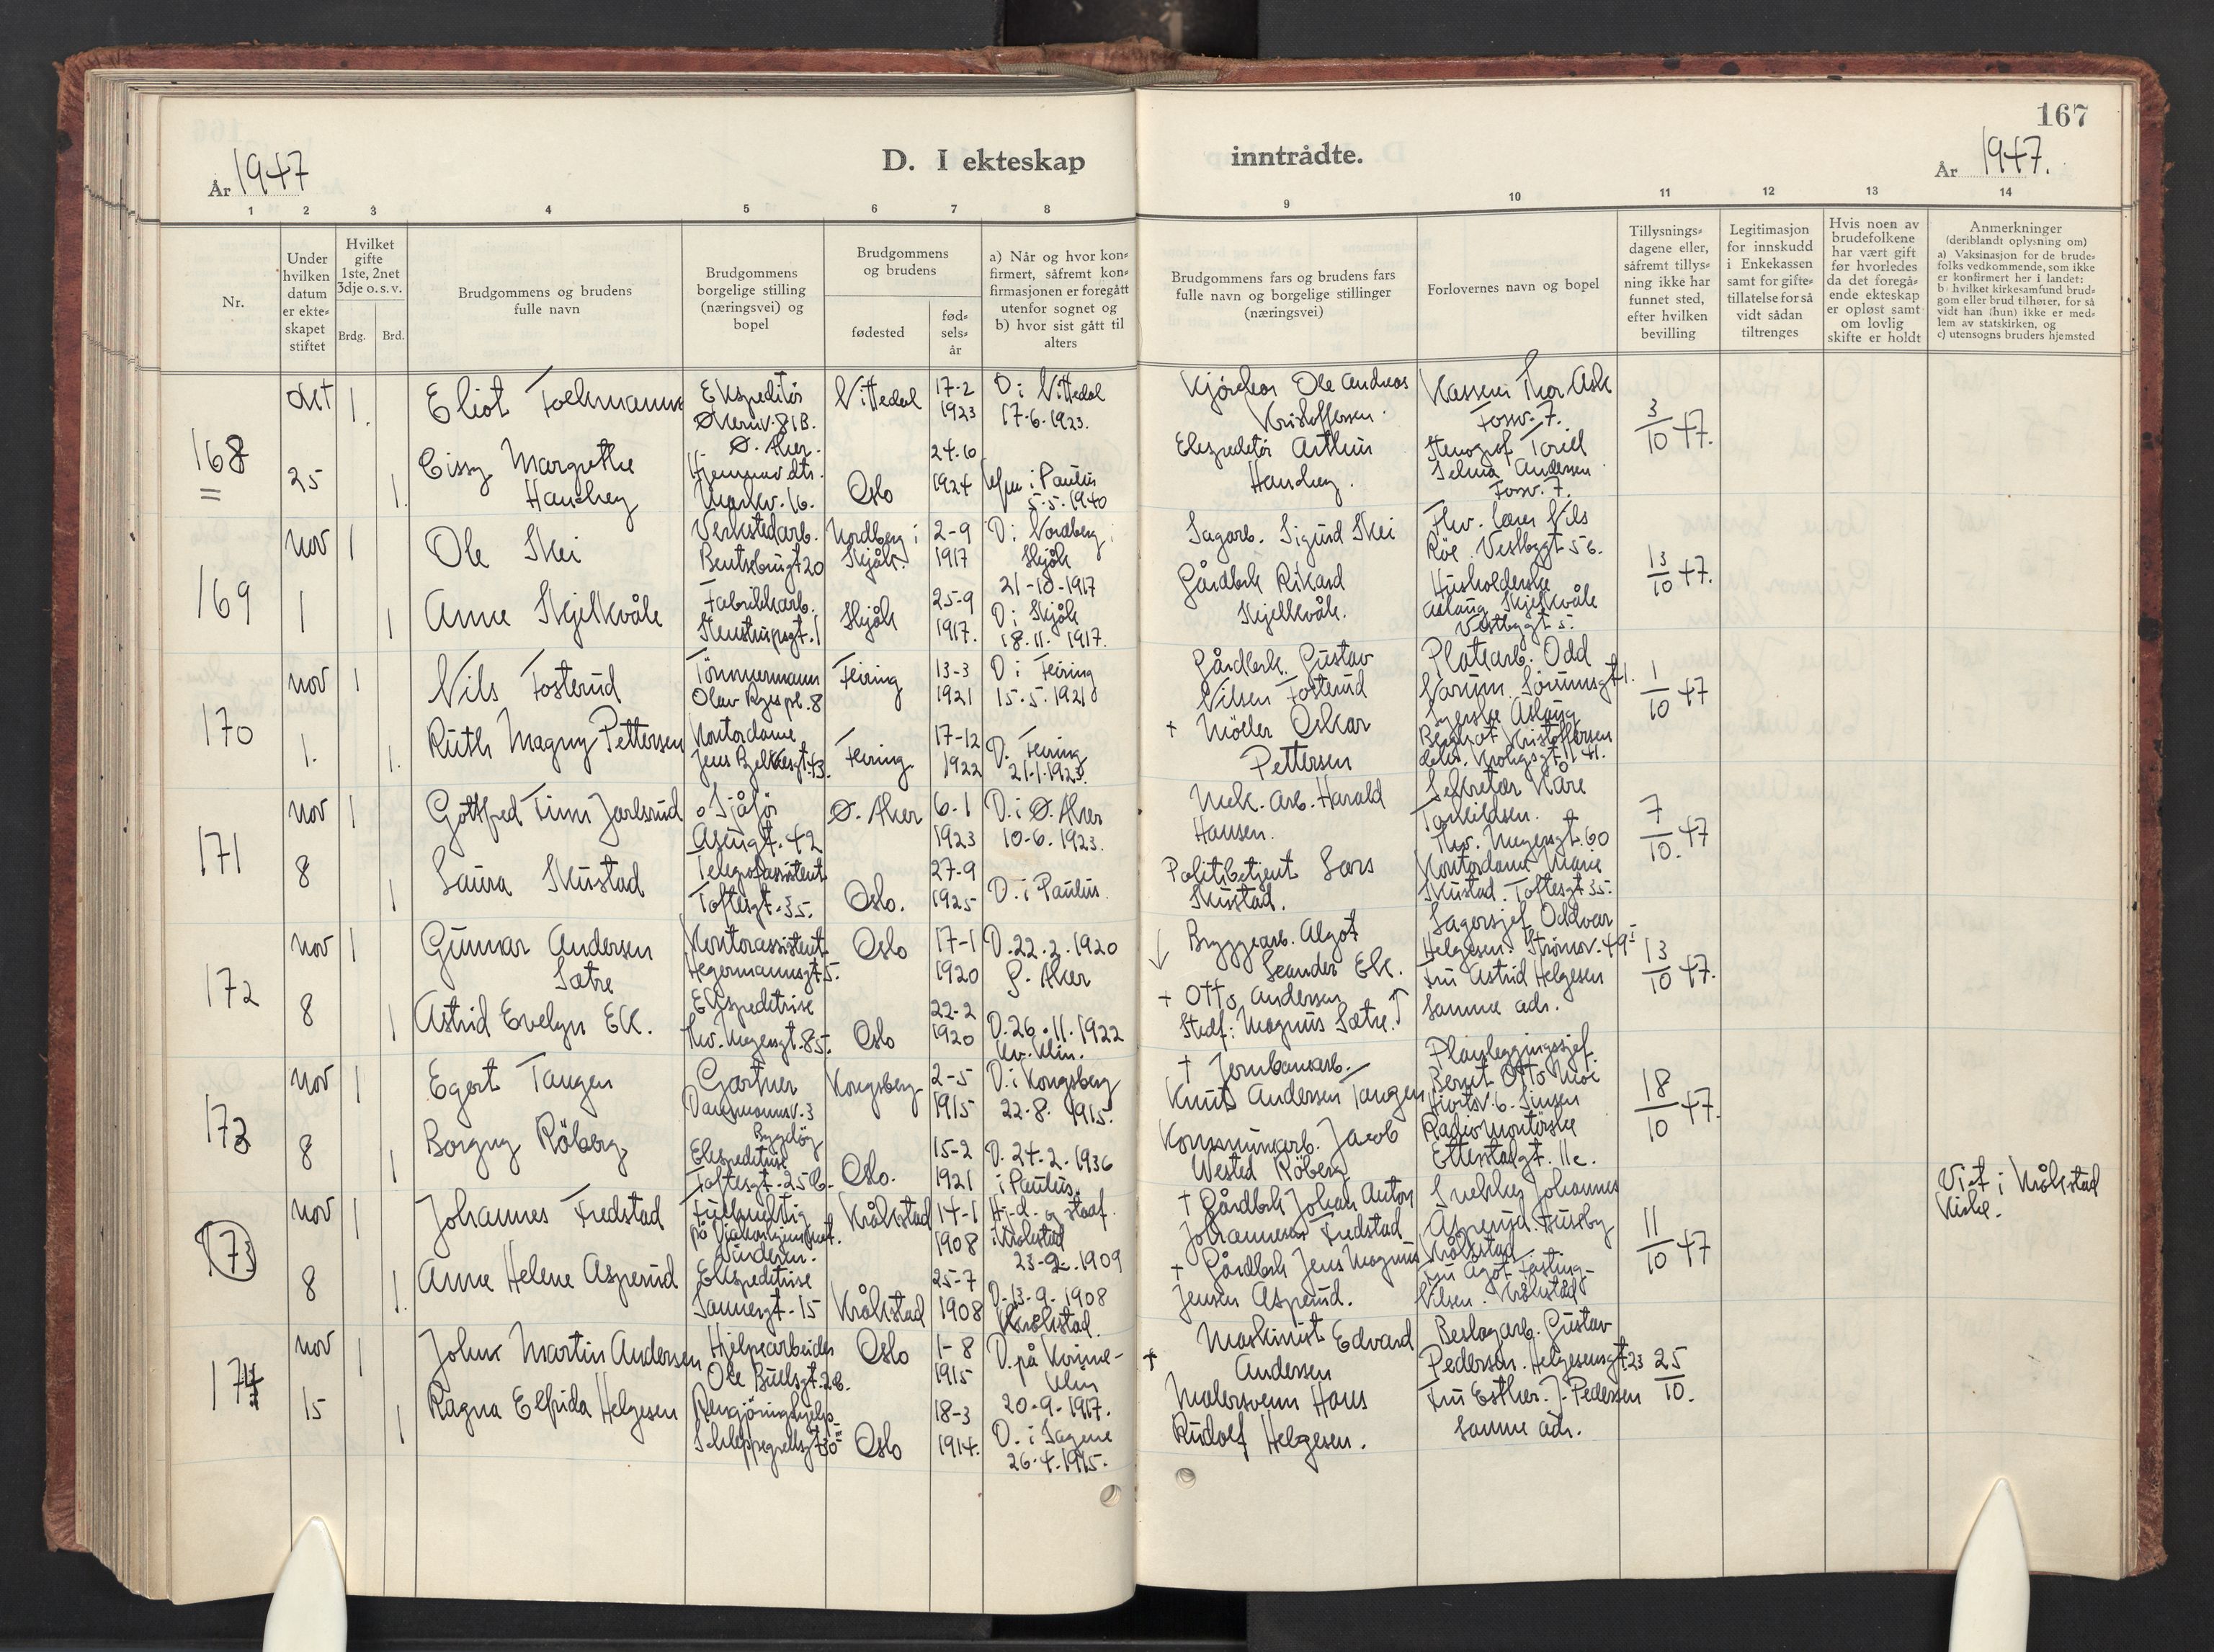 167
År 1947
D. I ekteskap
inntrådte.
År 1947.
1 2 3 4 5 6 7 8
9 10 11 12 13 14
Nr.
Under
hvilken
datum
er ekte-
skapet
stiftet
Hvilket
gifte
1ste, 2net
3dje o. s. v.
Brdg. Brd.
Brudgommens og brudens
fulle navn
Brudgommens
borgelige stilling
(næringsvei) og
bopel
Brudgommens
og brudens
fødested
fød-
sels-
år
a) Når og hvor kon-
firmert, såfremt kon-
firmasjonen er foregått
utenfor sognet og
b) hvor sist gått til
alters
Brudgommens fars og brudens fars
fulle navn og borgelige stillinger
(næringsvei)
Forlovernes navn og bopel
Tillysnings-
dagene eller,
såfremt tillys-
ning ikke har
funnet sted,
efter hvilken
bevilling
Legitimasjon
for innskudd
i Enkekassen
samt for gifte-
tillatelse for så
vidt sådan
tiltrenges
Hvis noen av
brudefolkene
har vært gift
før hvorledes
da det foregå-
ende ekteskap
er opløst samt
om lovlig
skifte er holdt
Anmerkninger
(deriblandt oplysning om)
a) Vaksinasjon for de brude-
folks vedkommende, som ikke
er konfirmert her i landet:
b) hvilket kirkesamfund brud-
gom eller brud tilhører, for så
vidt han (hun) ikke er med-
lem av statskirken, og
c) utensogns bruders hjemsted
168
okt
25
1.
1.
Eliot
Cissy Margrethe
Ekspeditør
Ø. Aker.
Markv. 16.
Nittedal
Oslo
17-2
1923
24-10
1924
D i Nittedal
17-6-1923.
i Paulus
5-5-1940
Ole Andreas
Kristoffersen.
Ekspeditør Arthur
Thor Ask
Fossv. 7.
Stenograf Toril
Selma Andersen
Fossv. 7.
3/10 47.
169
nov
1
1
1
Ole Skei
Anne Skjelkvåle
Verkstedarb.
Bentsebrugt 20
Fabrikkarb.
Nordberg i
Skjåk.
Skjåk
2-9
1917
25-9
1917.
D i Nordberg i
Skjåk
21-10-1917
D i Skjåk
18-11-1917.
Sagarb. Sigurd Skei
Gårdbr. Rikard
Skjellkvåle.
Fhv. lærer Nils
Røe. Vestbygt 56.
Husholderske
Aslaug Skjelkvåle
Vestbygt 5.
13/10 47.
170
nov
1.
1
1.
Nils Fosterud
Ruth Magny Pettersen
Tömmermann
Olav Ryes pl. 8
Kontordame
Jens Bjelkesgt. 43.
Feiring
Feiring
13-3
1921
17-12
1922
D i Feiring
15-5-1921
D. Feiring
21-1-1923.
Gårdbr. Gustav
Nilsen Fosterud
+ Möller Oskar
Pettersen
Platearb. Odd
Syerske Aslaug
Bergliot Kristoffersen
1/10 47
171
nov
8
1
1
Gottfred Finn Jarlsrud
Laura Skustad
Sjåfør
Telegrafassistent
Toftesgt. 35.
Ø. Aker
Oslo.
6-1
1923
27-9
1925
D. i Ø. Aker
10-6-1923.
D. i Paulus.
Mek. Arb. Harald
Hansen.
Politibetjent Lars
Skustad.
Sekretær Kåre
Torkildsen.
Thv. Meyersgt. 60
Kontordame Marie
Skustad. Toftesgt 35.
7/10. 47
172
nov
8
1
1
Gunnar Andersen
Sætre
Astrid Evelyn Ek.
Kontorassistent
Hegermannsgt 5.
Ekspeditrise
Thv. Meyersgt. 85.
Oslo
Oslo
17-1
1920
22-2
1920
D. 22.2.1920
G. Aker
D. 26-11-1922
Bryggearb. Algot
Leander Ek.
+ Otto Andersen
Stedf: Magnus Sætre.
Lagersjef Oddvar
Helgesen. Strömsv. 49
Fru Astrid Helgesen
Samme adr.
13/10 47.
173
nov
8
1
1
Egert Tangen
Borgny Röberg
Gartner
Bygdöy
Ekspeditrise
Toftesgt. 25b.
Kongsberg
Oslo.
2-5
1915
15-2
1921
D. i Kongsberg
22-8-1915.
D. 24-2-1936
i Paulus.
+ Jernbanearb.
Knut Andersen Tangen
Jacob
Wested Röberg
Planleggingssjef
Bernt Otto Moe
Hiortsv. 6. Sinsen
Radiomontørske
Etterstadgt. 11c.
18/10 47.
173
nov
8
1
1.
Johannes Fredstad
Anne Helene Asperud
Fullmektig
Vinderen.
Ekspeditrise
Sannergt. 15
Kråkstad
Kråkstad
14-1
1908
25-7
1908
i Kråkstad
23-2-1909
D. 13-9-1908
Kråkstad.
+ Gårdbr. Johan Anton
Johannesen Fredstad
+ Gårdbr. Jens Magnus
Jensen Asperud.
Snekker Johannes
Asperud. Huseby
Kråkstad
Fru Agot Fosting-
Nilsen. Kråkstad
11/10 47
Viet i Kråkstad
Kirke.
174
nov
15
1
1
John Martin Andersen
Ragna Elfrida Helgesen
Hjelpearbeider
Ole Bullsgt. 2b.
Rengjøringshjelp
Schleppegrellsgt 30
Oslo
Oslo
1-8
1915
18-3
1914.
D. på Kvinne-
klin
20-9-1917.
D. i Sagene
26-4-1915.
+
Maskinist Edvard
Andersen
Malersvenn Hans
Rudolf Helgesen.
Beslagarb. Gustav
Pedersen. Helgesensgt. 23
Fru Esther. J. Pedersen
samme adr.
25/10.